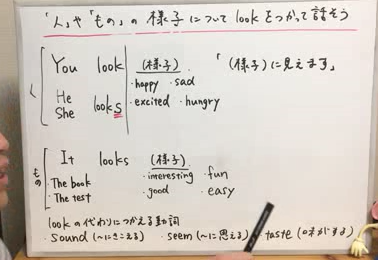 「人」や「もの」の様子について look をつかって話そう
You look (様子) 「(様子)に見えます」
・happy ・sad
He
She looks ・excited ・hungry
It looks (様子)
もの
・The book ・interesting ・fun
・The test ・good ・easy
lookの代わりにつかえる動詞
・sound (〜にきこえる) ・seem (〜に思える) ・taste (味がする)